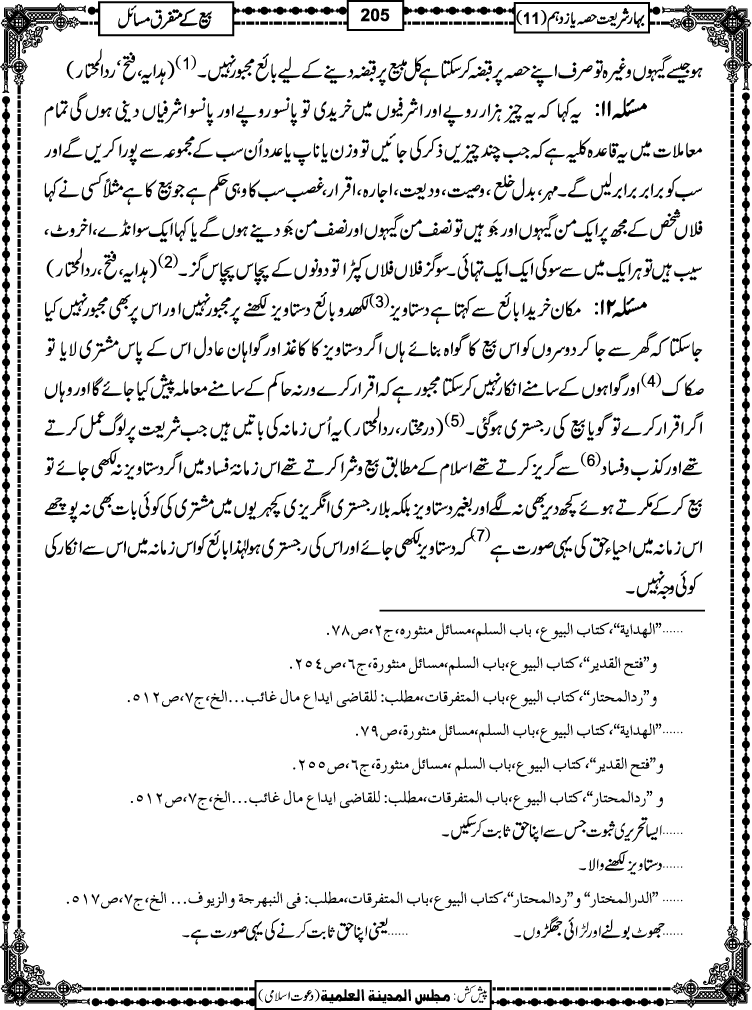 بہار شریعت حصہ یازدہم (11)
205
بیع کے متفرق مسائل
ہو جیسے گیہوں وغیرہ تو صرف اپنے حصہ پر قبضہ کر سکتا ہے کل مبیع پر قبضہ دینے کے لیے بائع مجبور نہیں۔(1) (ہدایہ، فتح، ردالمحتار)
مسئلہ ۱۱: یہ کہا کہ یہ چیز ہزار روپے اور اشرفیوں میں خریدی تو پانسو روپے اور پانسو اشرفیاں دینی ہوں گی تمام
معاملات میں یہ قاعدہ کلیہ ہے کہ جب چند چیزیں ذکر کی جائیں تو وزن یا ناپ یا عدد اُن سب کے مجموعہ سے پورا کریں گے اور
سب کو برابر برابر لیں گے۔ مہر، بدل خلع، وصیت، ودیعت، اجارہ، اقرار، غصب سب کا وہی حکم ہے جو بیع کا ہے مثلاً کسی نے کہا
فلاں شخص کے مجھ پر ایک من گیہوں اور جَو ہیں تو نصف من گیہوں اور نصف من جَو دینے ہوں گے یا کہا ایک سو انڈے، اخروٹ،
سیب ہیں تو ہر ایک میں سے سو کی ایک ایک تہائی۔ سو گز فلاں فلاں کپڑا تو دونوں کے پچاس پچاس گز۔(2) (ہدایہ، فتح، ردالمحتار)
مسئلہ ۱۲: مکان خریدا بائع سے کہتا ہے دستاویز(3) لکھدو بائع دستاویز لکھنے پر مجبور نہیں اور اس پر بھی مجبور نہیں کیا
جا سکتا کہ گھر سے جا کر دوسروں کو اس بیع کا گواہ بنائے ہاں اگر دستاویز کا کاغذ اور گواہان عادل اس کے پاس مشتری لایا تو
صکاک(4) اور گواہوں کے سامنے انکار نہیں کر سکتا مجبور ہے کہ اقرار کرے ورنہ حاکم کے سامنے معاملہ پیش کیا جائے گا اور وہاں
اگر اقرار کرے تو گویا بیع کی رجسٹری ہو گئی۔(5) (درمختار، ردالمحتار) یہ اُس زمانہ کی باتیں ہیں جب شریعت پر لوگ عمل کرتے
تھے اور کذب و فساد(6) سے گریز کرتے تھے اسلام کے مطابق بیع و شرا کرتے تھے اس زمانۂ فساد میں اگر دستاویز نہ لکھی جائے تو
بیع کر کے مکرتے ہوئے کچھ دیر بھی نہ لگے اور بغیر دستاویز بلکہ بلا رجسٹری انگریزی کچہریوں میں مشتری کی کوئی بات بھی نہ پوچھے
اس زمانہ میں احیاء حق کی یہی صورت ہے(7) کہ دستاویز لکھی جائے اور اس کی رجسٹری ہو لہٰذا بائع کو اس زمانہ میں اس سے انکار کی
کوئی وجہ نہیں۔
......”الهداية“، كتاب البيوع، باب السلم، مسائل منثورہ، ج۲، ص۷۸.
و”فتح القدير“، كتاب البيوع، باب السلم، مسائل منثورة، ج٦، ص٢٥٤.
و”ردالمحتار“، كتاب البيوع، باب المتفرقات، مطلب: للقاضی ايداع مال غائب...الخ، ج٧، ص٥١٢.
......”الهداية“، كتاب البيوع، باب السلم، مسائل منثورة، ص٧٩.
و”فتح القدير“، كتاب البيوع، باب السلم، مسائل منثورة، ج٦، ص٢٥٥.
و ”ردالمحتار“، كتاب البيوع، باب المتفرقات، مطلب: للقاضی ايداع مال غائب...الخ، ج٧، ص٥١٢.
......ایسا تحریری ثبوت جس سے اپنا حق ثابت کر سکیں۔
......دستاویز لکھنے والا۔
...... ”الدرالمختار“ و”ردالمحتار“، كتاب البيوع، باب المتفرقات، مطلب: فی النبهرجة والزيوف... الخ، ج٧، ص٥١٧.
......جھوٹ بولنے اور لڑائی جھگڑوں۔ ......یعنی اپنا حق ثابت کرنے کی یہی صورت ہے۔
پیش کش: مجلس المدینة العلمیة (دعوت اسلامی)